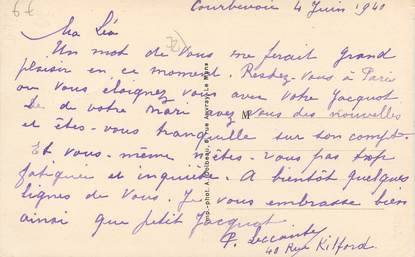 6€
Courbevoie 4 Juin 1940
Ma Léa
Un mot de vous me ferait grand
plaisir en ce moment. Restez-vous à Paris
ou vous éloignez vous avec votre Jacquot.
De de votre mari avez vous des nouvelles
et êtes-vous tranquille sur son compte.
Et vous-même n'êtes-vous pas trop
fatiguée et inquiète. A bientôt quelques
lignes de vous. Je vous embrasse bien
ainsi que petit Jacquot
P. Lecointe
40 Rue Kilford
M
Imp.-phot. A. Dolbeau, 6, rue Auvray. Le Mans